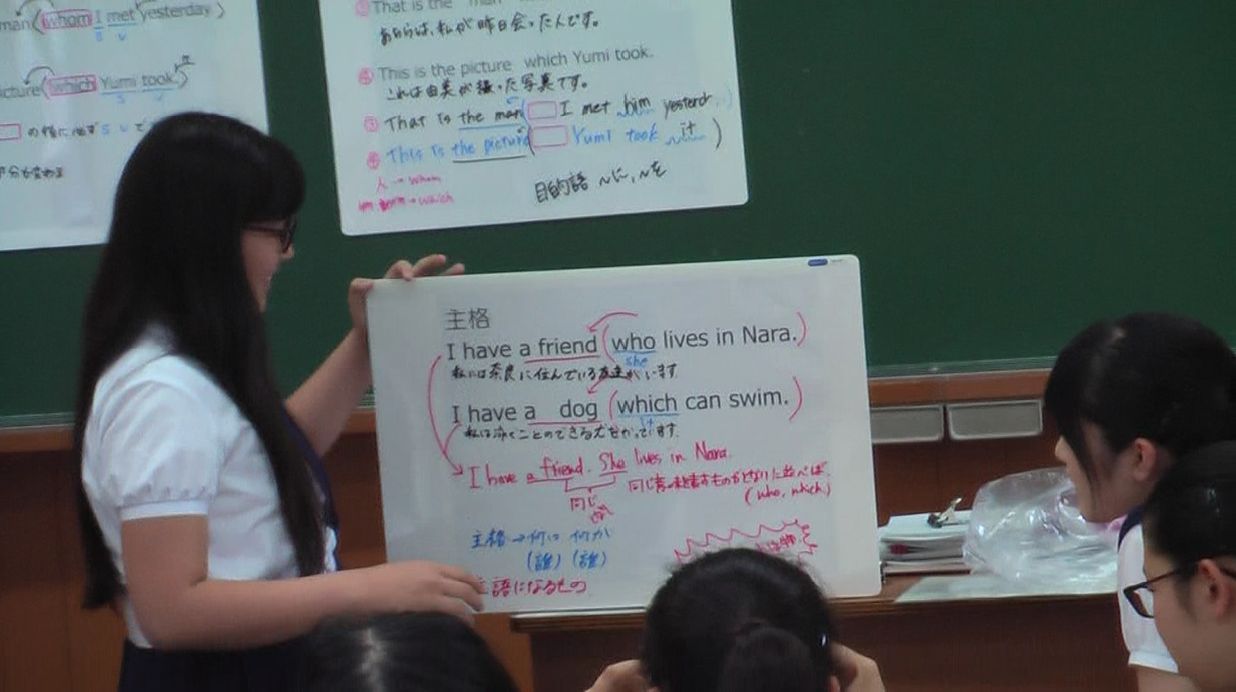 man (whom I met yesterday)
S V
icture (which Yumi took)
S V
の後に必ず S V で
That is the man
あちらは、私が昨日会った人です。
④ This is the picture which Yumi took.
これは由美が撮った写真です。
③ That is the man ( I met him yesterd
④ This is the picture ( Yumi took it )
人 → whom
→ which
目的語 〜に、〜を
主格
I have a friend (who lives in Nara.)
she
私には奈良に住んでいる友達がいます
I have a dog (which can swim.)
it
私は泳ぐことのできる犬をかっています.
I have a friend. She lives in Nara.
同じ
(who, which)
主格 → 何は 何が
(誰) (誰)
主語になるもの